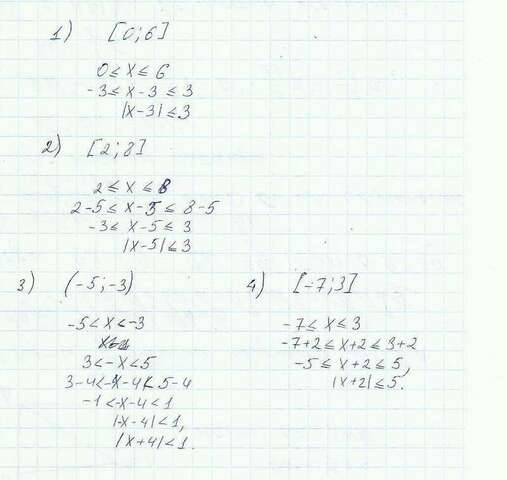 1) [0;6]
0 ≤ x ≤ 6
-3 ≤ x-3 ≤ 3
|x-3| ≤ 3
2) [2;8]
2 ≤ x ≤ 8
2-5 ≤ x-5 ≤ 8-5
-3 ≤ x-5 ≤ 3
|x-5| ≤ 3
3) (-5;-3)
-5 < x < -3
3 < -x < 5
3-4 < -x-4 < 5-4
-1 < -x-4 < 1
|-x-4| < 1,
|x+4| < 1.
4) [-7;3]
-7 ≤ x ≤ 3
-7+2 ≤ x+2 ≤ 3+2
-5 ≤ x+2 ≤ 5,
|x+2| ≤ 5.